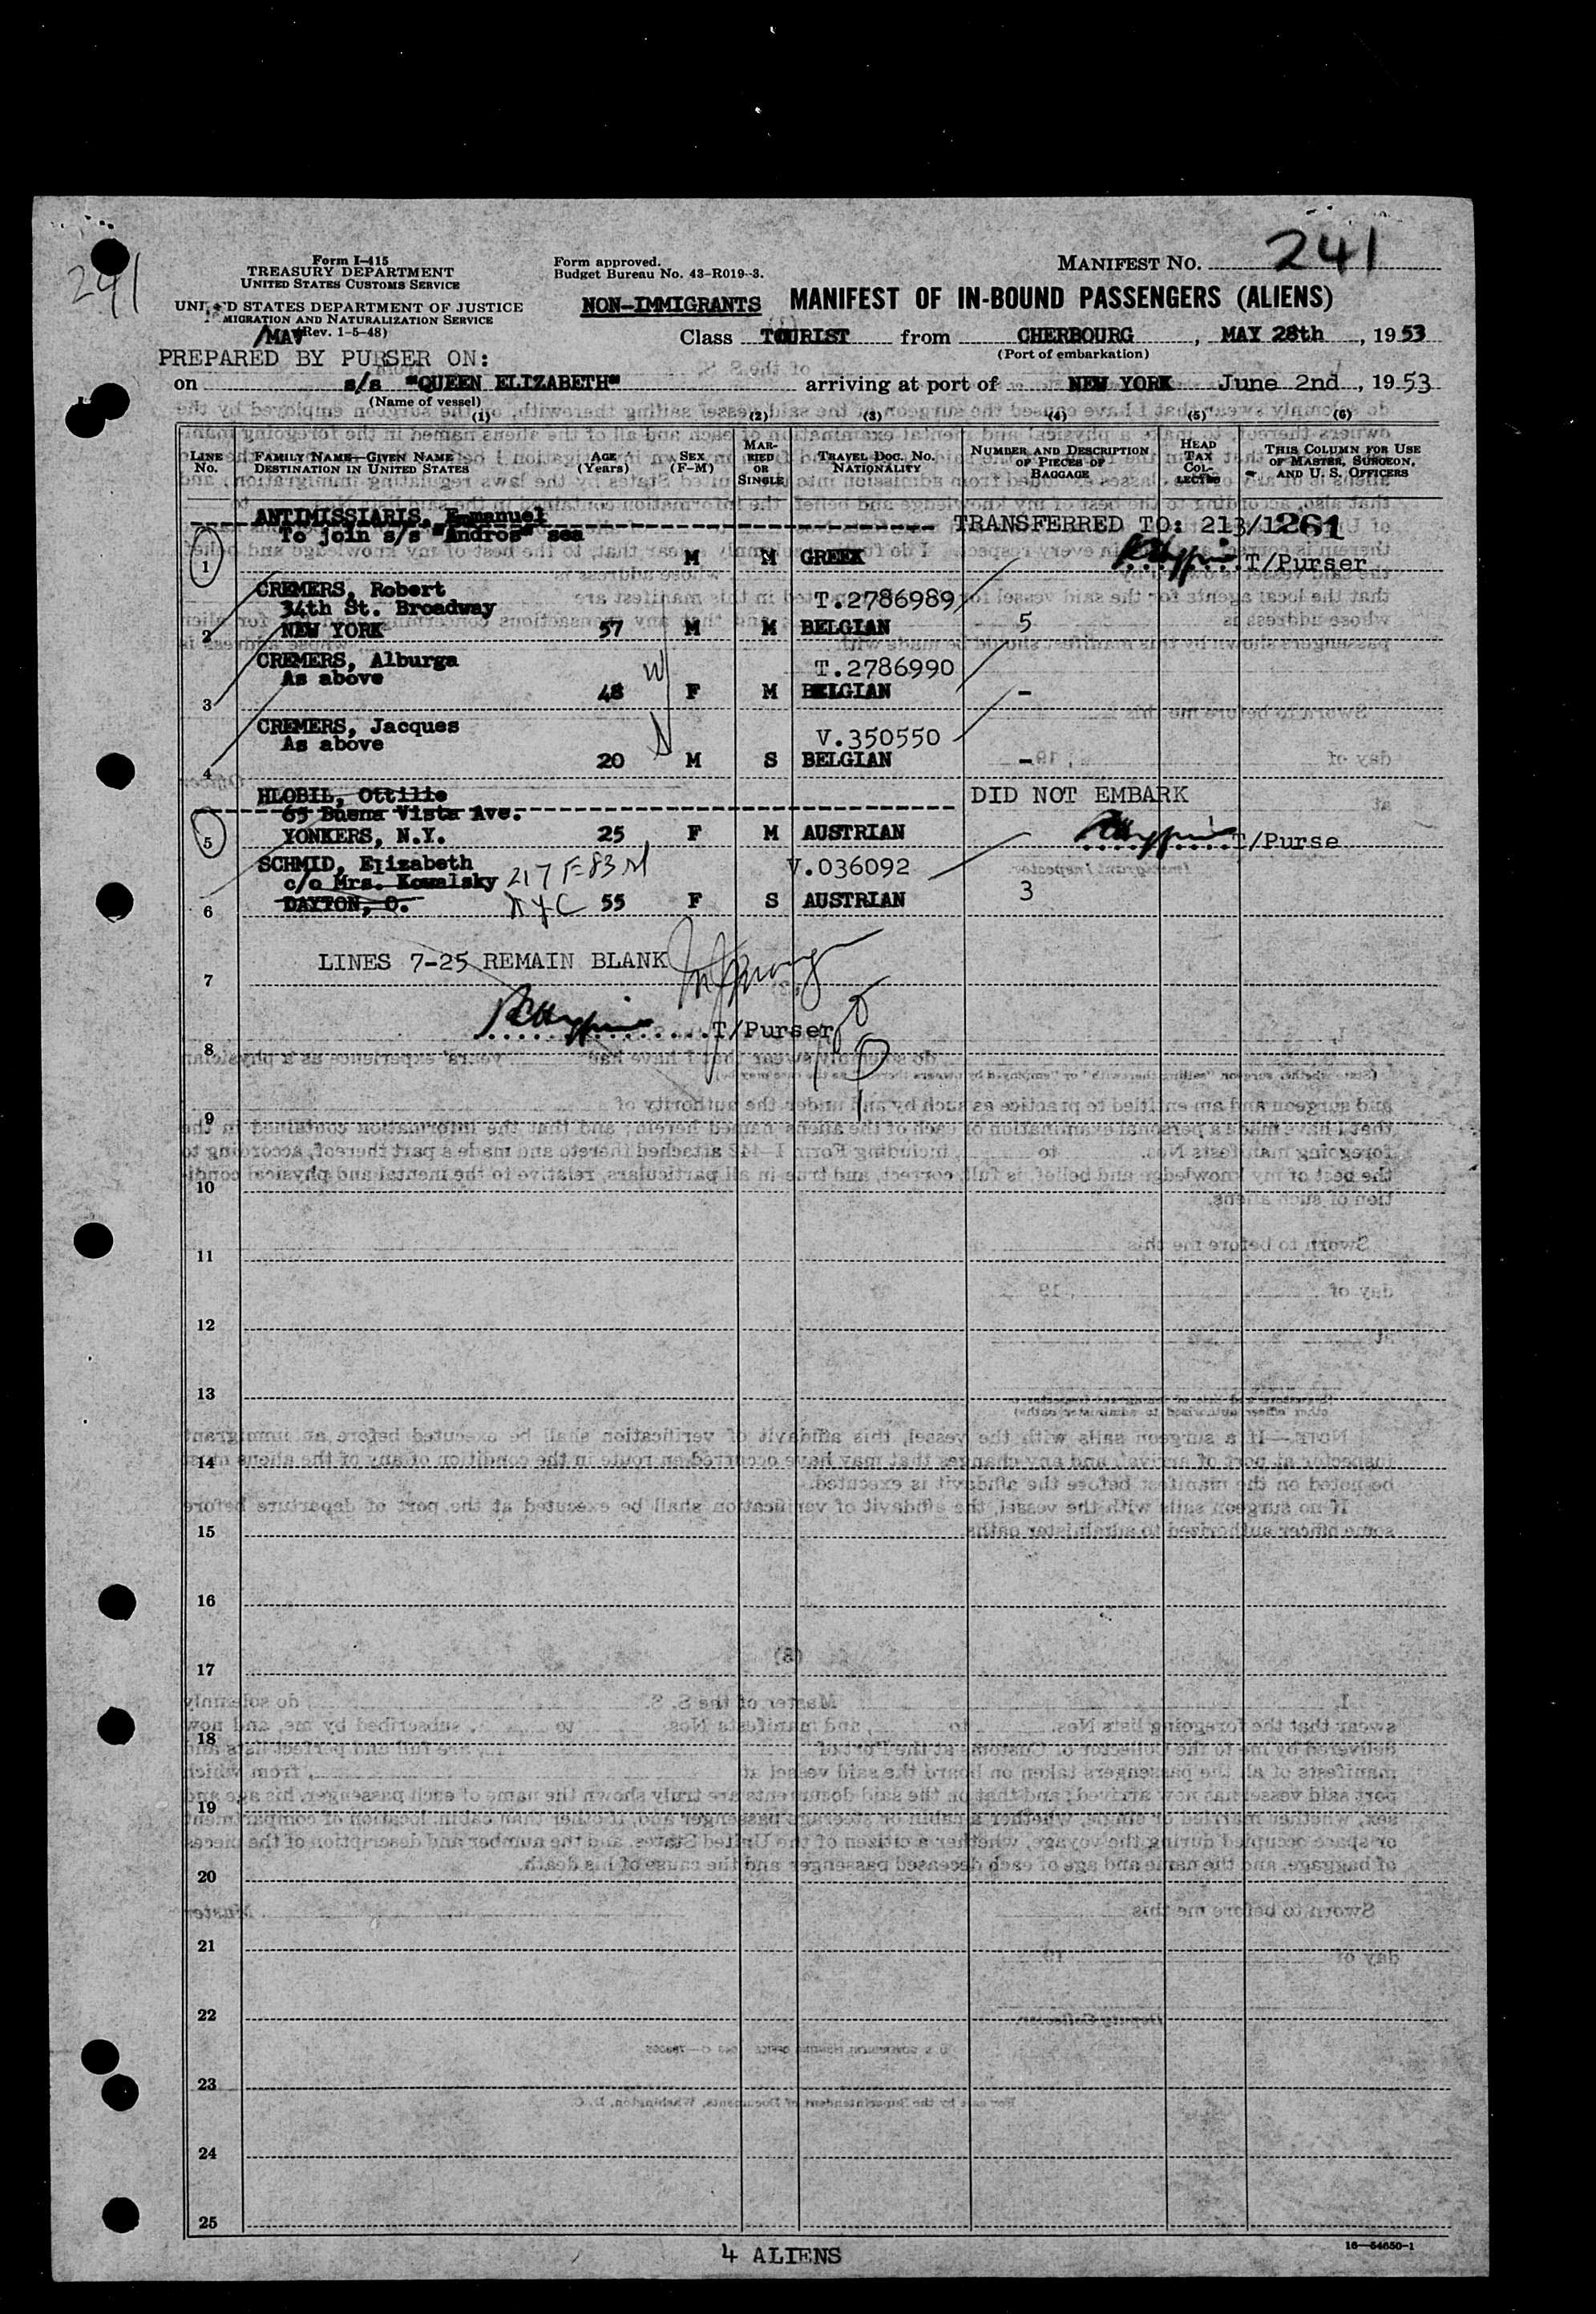 241
241
Form I-415
TREASURY DEPARTMENT
UNITED STATES CUSTOMS SERVICE
UNITED STATES DEPARTMENT OF JUSTICE
IMMIGRATION AND NATURALIZATION SERVICE
(Rev. 1-5-48)
Form approved.
Budget Bureau No. 43-R019-3.
MANIFEST NO. 241
NON-IMMIGRANTS MANIFEST OF IN-BOUND PASSENGERS (ALIENS)
Class TOURIST from CHERBOURG, MAY 28th, 1953
(Port of embarkation)
PREPARED BY PURSER ON:
on s/s "QUEEN ELIZABETH" arriving at port of NEW YORK June 2nd, 1953
(Name of vessel)
(1) (2) (3) (4) (5) (6)
LINE No. FAMILY NAME—GIVEN NAME DESTINATION IN UNITED STATES AGE (Years) SEX (F-M) MARRIED OR SINGLE TRAVEL DOC. NO. NATIONALITY NUMBER AND DESCRIPTION OF PIECES OF BAGGAGE HEAD TAX COLLECTED THIS COLUMN FOR USE OF MASTER, SURGEON, AND U. S. OFFICERS
ANTIMISSIARIS, Emmanuel TRANSFERRED TO: 213/1261
To join s/s "Andros" sea
1 M M GREEK T/Purser
CREMERS, Robert
34th St. Broadway T.2786989
2 NEW YORK 57 M M BELGIAN 5
CREMERS, Alburga T.2786990
As above
3 48 F M BELGIAN -
CREMERS, Jacques
As above V.350550
4 20 M S BELGIAN -
HLOBIL, Ottilie DID NOT EMBARK
65 Buena Vista Ave.
5 YONKERS, N.Y. 25 F M AUSTRIAN T/Purse
SCHMID, Elizabeth V.036092
c/o Mrs. Kowalsky 217 E 83 st
6 DAYTON, O. NYC 55 F S AUSTRIAN 3
LINES 7-25 REMAIN BLANK
7
T/Purser
8
9
10
11
12
13
14
15
16
17
18
19
20
21
22
23
24
25
4 ALIENS
16—54650-1